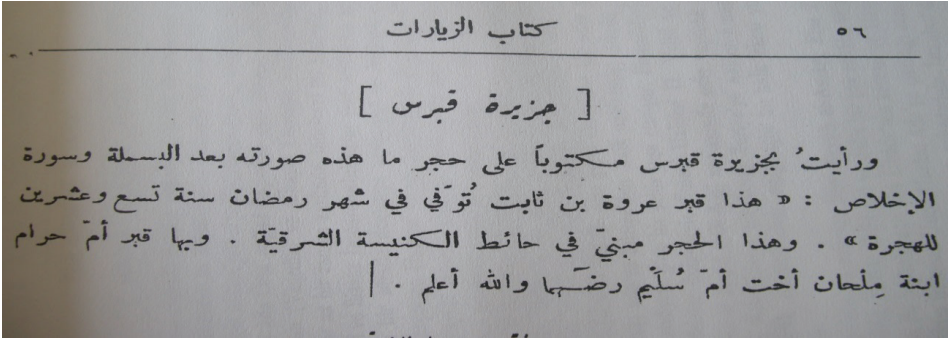 ٥٦ كتاب الزيارات
[ جزيرة قبرس ]
ورأيتُ بجزيرة قبرس مكتوباً على حجر ما هذه صورته بعد البسملة وسورة
الإخلاص : « هذا قبر عروة بن ثابت تُوَفّي في شهر رمضان سنة تسع وعشرين
للهجرة » . وهذا الحجر مبنيّ في حائط الكنيسة الشرقيّة . وبها قبر أمّ حرام
ابنة مِلْحان أخت أمّ سُلَيْم رضّهما والله أعلم . |